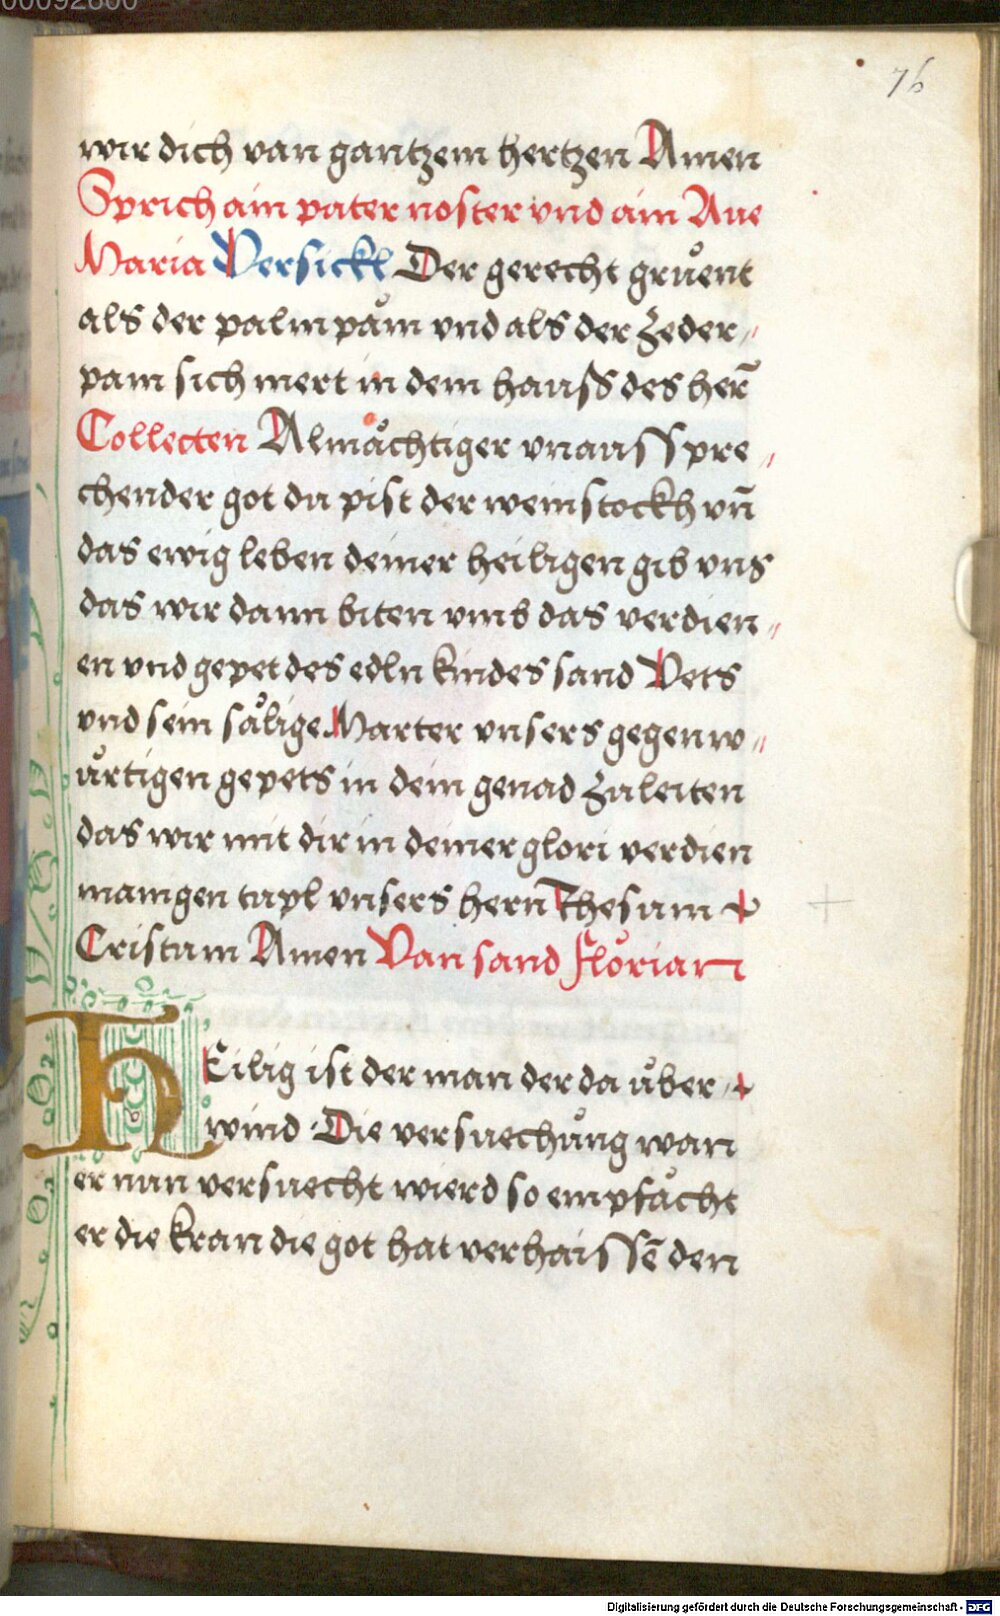 00092800
76
wir dich van gantzem hertzen Amen
Sprich ain pater noster vnd ain Aue
Maria Versickl Der gerecht grůent
als der palmpåm vnd als der Zeder〃
pam sich mert in dem hauss des her̄
Collecten Almåchtiger vnausspre〃
chender got du pist der weinstockh vn̄
das ewig leben deiner heiligen gib vns
das wir dann biten vmb das verdien〃
en vnd gepet des edln kindes sand Veits
vnd sein sålige Marter vnsers gegenw〃
ůrtigen gepets in dein genad Zuleiten
das wir mit dir in deiner glori verdien
maingen tapl vnsers hern Ihesum
Cristum Amen Van sand Florian
HEilig ist der man der da ůber
wind · Die versuechůng wan
er nun versuecht wierd so empfåcht
er die kran die got hat verhaissē den
Digitalisierung gefördert durch die Deutsche Forschungsgemeinschaft - DFG